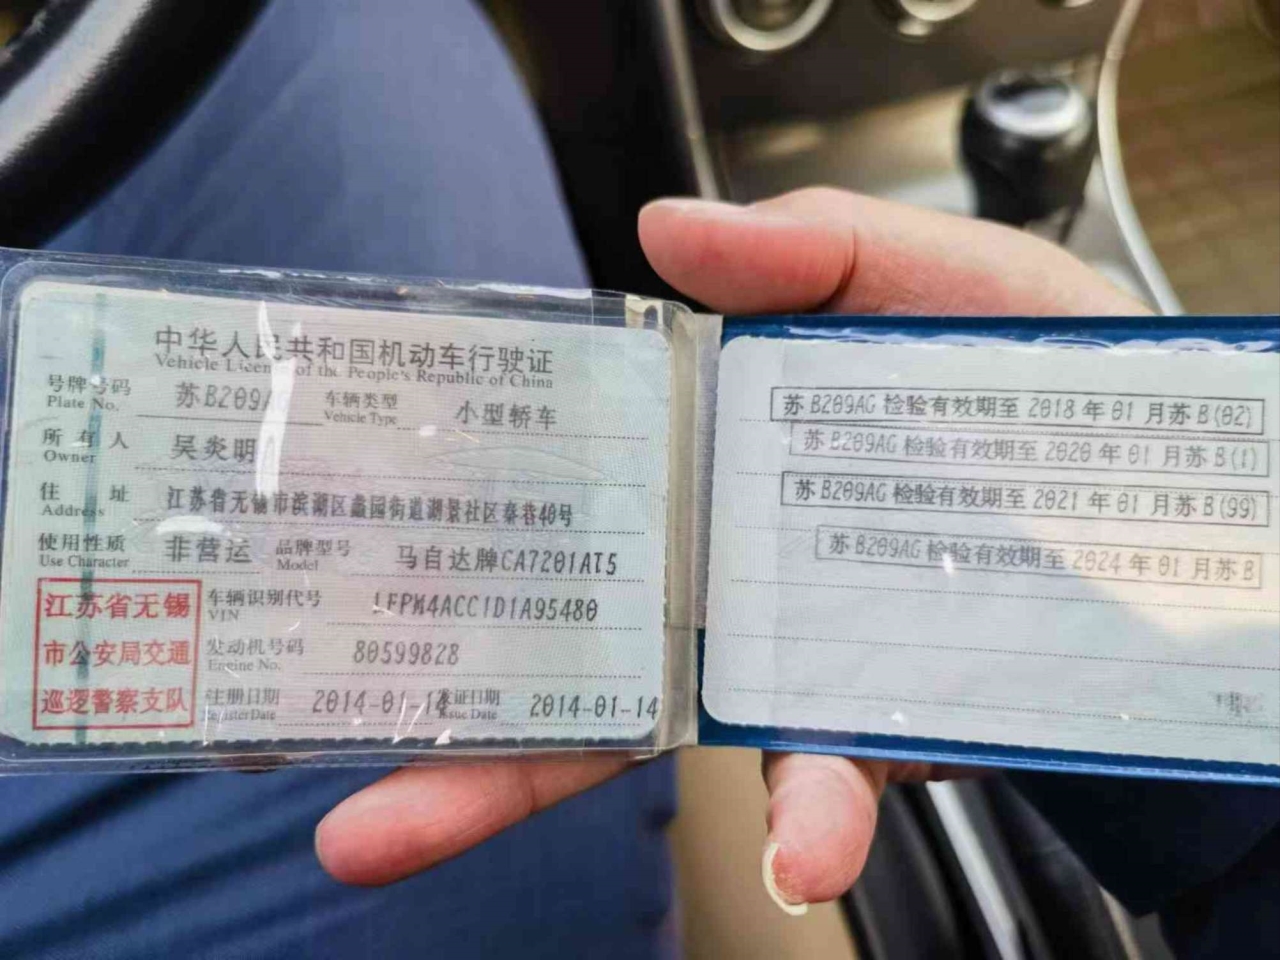 中华人民共和国机动车行驶证
Vehicle License of the People's Republic of China
号牌号码 苏B209A 车辆类型 小型轿车
Plate No. Vehicle Type
所有人 吴炎明
Owner
住址 江苏省无锡市滨湖区蠡园街道湖景社区秦巷40号
Address
使用性质 非营运 品牌型号 马自达牌CA7201AT5
Use Character Model
江苏省无锡 车辆识别代号 LFPM4ACC1D1A95480
VIN
市公安局交通 发动机号码 80599828
Engine No.
巡逻警察支队 注册日期 2014-01-14 发证日期 2014-01-14
Register Date Issue Date
苏B209AG检验有效期至2018年01月苏B(02)
苏B209AG检验有效期至2020年01月苏B(1)
苏B209AG检验有效期至2021年01月苏B(99)
苏B209AG检验有效期至2024年01月苏B